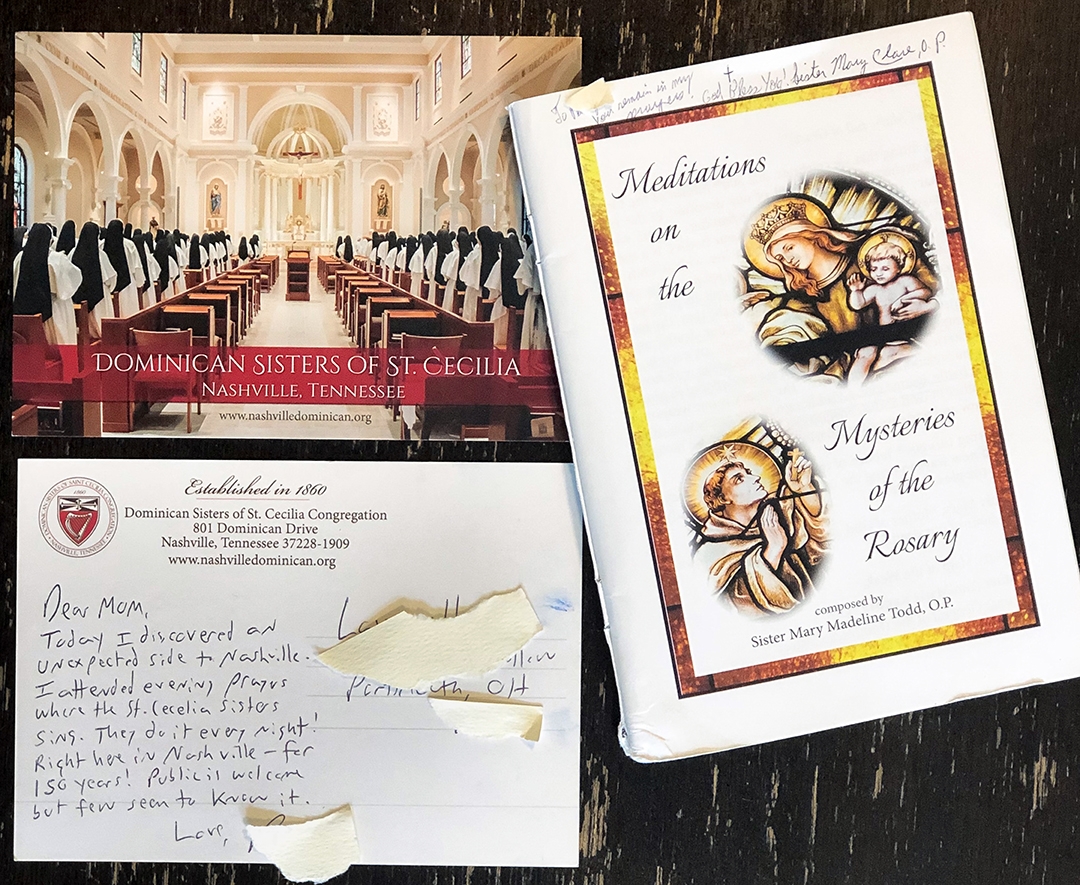 DOMINICAN SISTERS OF ST. CECILIA
NASHVILLE, TENNESSEE
www.nashvilledominican.org
Established in 1860
DOMINICAN SISTERS OF SAINT CECILIA CONGREGATION
1860
NASHVILLE, TENNESSEE
Dominican Sisters of St. Cecilia Congregation
801 Dominican Drive
Nashville, Tennessee 37228-1909
www.nashvilledominican.org
Dear Mom,
Today I discovered an
unexpected side to Nashville.
I attended evening prayer
where the St. Cecelia Sisters
sing. They do it every night!
Right here in Nashville – for
150 years! Public is welcome
but few seem to know it.
Love,
Portsmouth, OH
You remain in my
prayers. God Bless You! Sister Mary Clare, O.P.
Meditations
on
the
Mysteries
of the
Rosary
composed by
Sister Mary Madeline Todd, O.P.